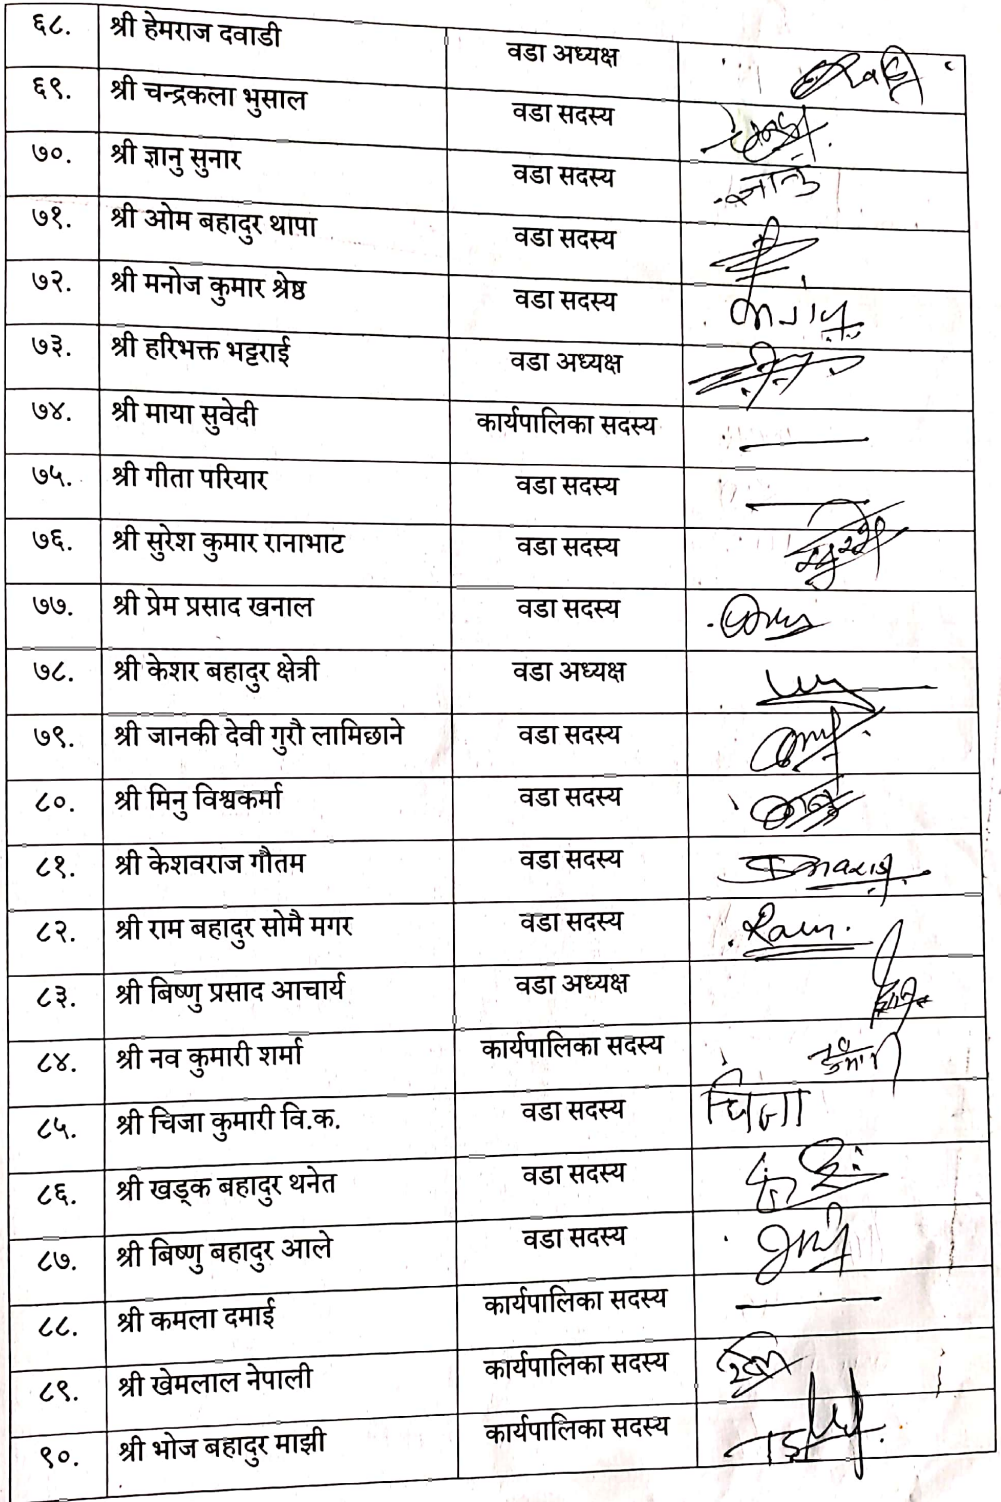 ६८. श्री हेमराज दवाडी वडा अध्यक्ष
६९. श्री चन्द्रकला भुसाल वडा सदस्य
७०. श्री ज्ञानु सुनार वडा सदस्य ज्ञानु
७१. श्री ओम बहादुर थापा वडा सदस्य
७२. श्री मनोज कुमार श्रेष्ठ वडा सदस्य
७३. श्री हरिभक्त भट्टराई वडा अध्यक्ष
७४. श्री माया सुवेदी कार्यपालिका सदस्य
७५. श्री गीता परियार वडा सदस्य
७६. श्री सुरेश कुमार रानाभाट वडा सदस्य
७७. श्री प्रेम प्रसाद खनाल वडा सदस्य
७८. श्री केशर बहादुर क्षेत्री वडा अध्यक्ष
७९. श्री जानकी देवी गुरौ लामिछाने वडा सदस्य
८०. श्री मिनु विश्वकर्मा वडा सदस्य
८१. श्री केशवराज गौतम वडा सदस्य
८२. श्री राम बहादुर सोमै मगर वडा सदस्य Ram.
८३. श्री बिष्णु प्रसाद आचार्य वडा अध्यक्ष
८४. श्री नव कुमारी शर्मा कार्यपालिका सदस्य
८५. श्री चिजा कुमारी वि.क. वडा सदस्य चिजा
८६. श्री खड्क बहादुर थनेत वडा सदस्य
८७. श्री बिष्णु बहादुर आले वडा सदस्य
८८. श्री कमला दमाई कार्यपालिका सदस्य
८९. श्री खेमलाल नेपाली कार्यपालिका सदस्य
९०. श्री भोज बहादुर माझी कार्यपालिका सदस्य